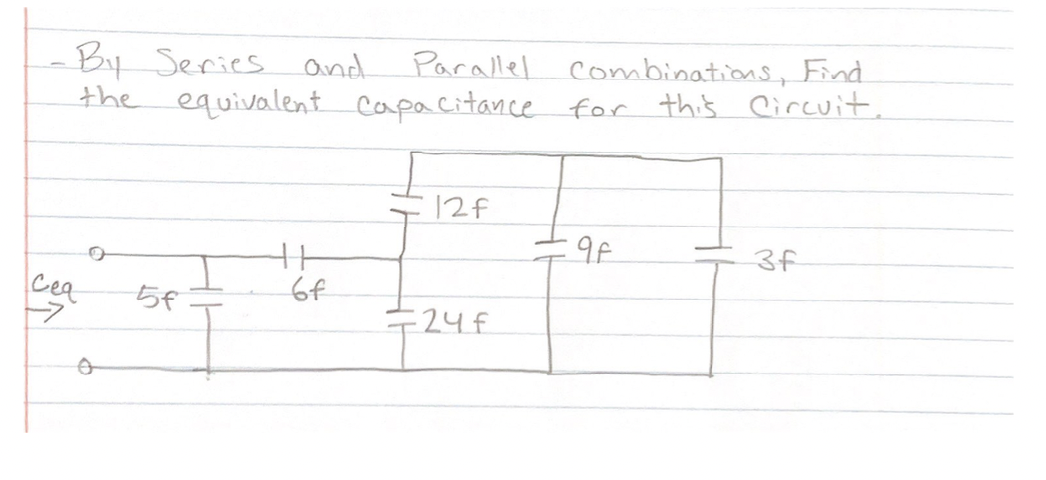 - By Series and Parallel combinations, Find
the equivalent capacitance for this Circuit.
12f
9f
3f
Ceq
5f
6f
24f